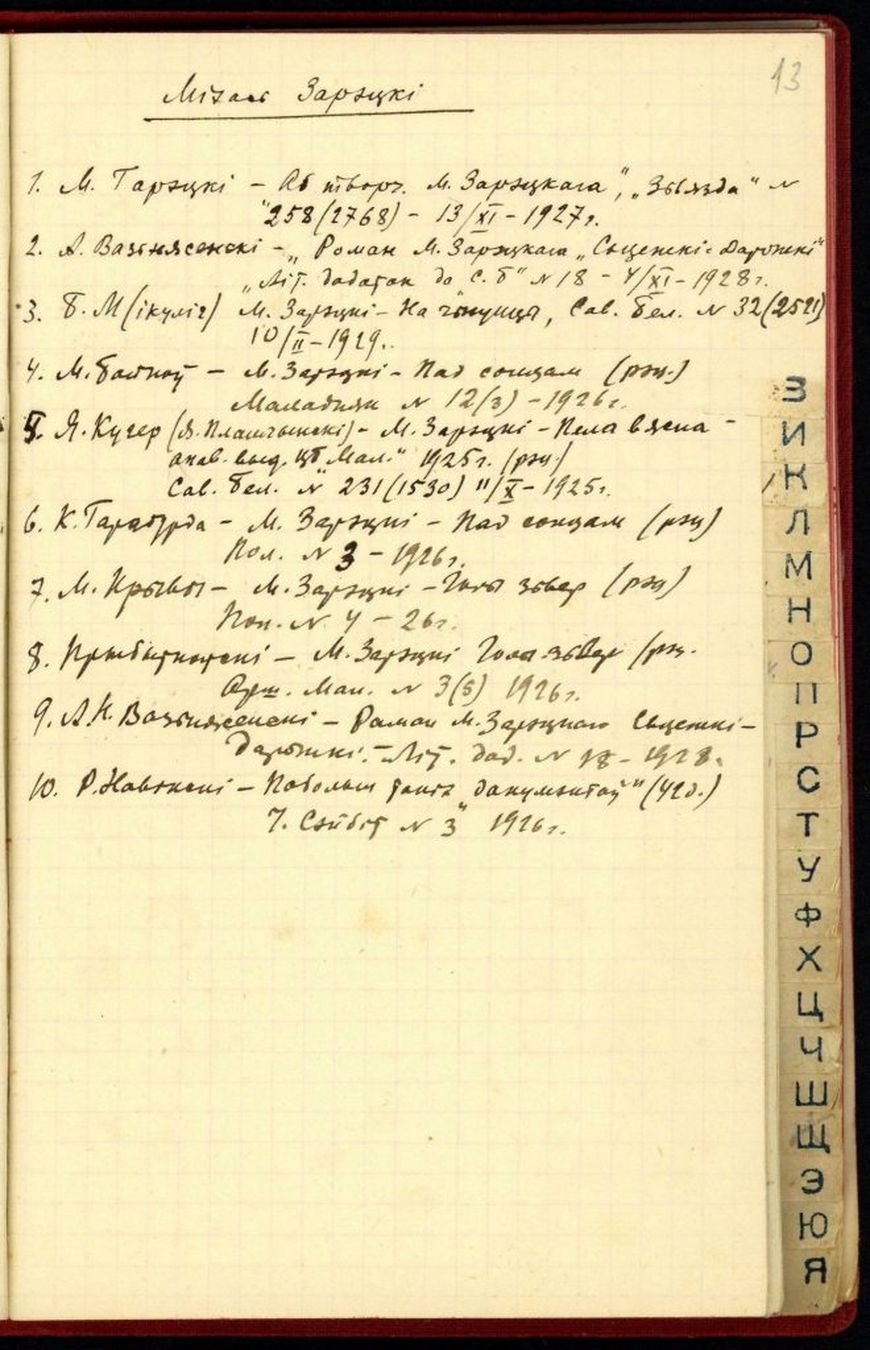 13
Міхась Зарэцкі
1. М. Гарэцкі – Аб творч. М. Зарэцкага", „Звязда" №
258 (2768) – 13/XI – 1927 г.
2. А. Вазьнясенскі – „Роман М. Зарэцкага „Сьцежкі-Дарожкі"
„Літ. дадатак да „С. Б" № 18 – 4/XI – 1928 г.
3. Б. М(ікуліч) М. Зарэцкі – На чыгунцы, Сав. Бел. № 32 (2521)
10/II – 1929.
4. М. Байкоў – М. Зарэцкі – Пад сонцам (рэц.)
Маладняк № 12(3) – 1926 г.
5. Я. Кучер (Я. Плашчынскі) – М. Зарэцкі – Пела вясна –
апав. выд. ЦБ „Мал." 1925 г. (рэц.)
Сав. Бел. № 231 (1530) 11/X – 1925 г.
6. К. Тарабурда – М. Зарэцкі – Пад сонцам (рэц)
Пол. № 3 – 1926 г.
7. М. – М. Зарэцкі – Голы зьвер (рэц)
Пол. № 4 – 26 г.
8. Прыбыткоўскі – М. Зарэцкі Голы зьвер (рэц.
Арш. Мал. № 3(5) 1926 г.
9. А. Н. Вазьнясенскі – Раман М. Зарэцкаго Сьцежкі –
Дарожкі. – Літ. дад. № 18 – 1928.
10. Р. – Набольш такіх „дакумэнтаў" (42 d.)
7. № 3 1926 г.
З
И
К
Л
М
Н
О
П
Р
С
Т
У
Ф
Х
Ц
Ч
Ш
Щ
Э
Ю
Я